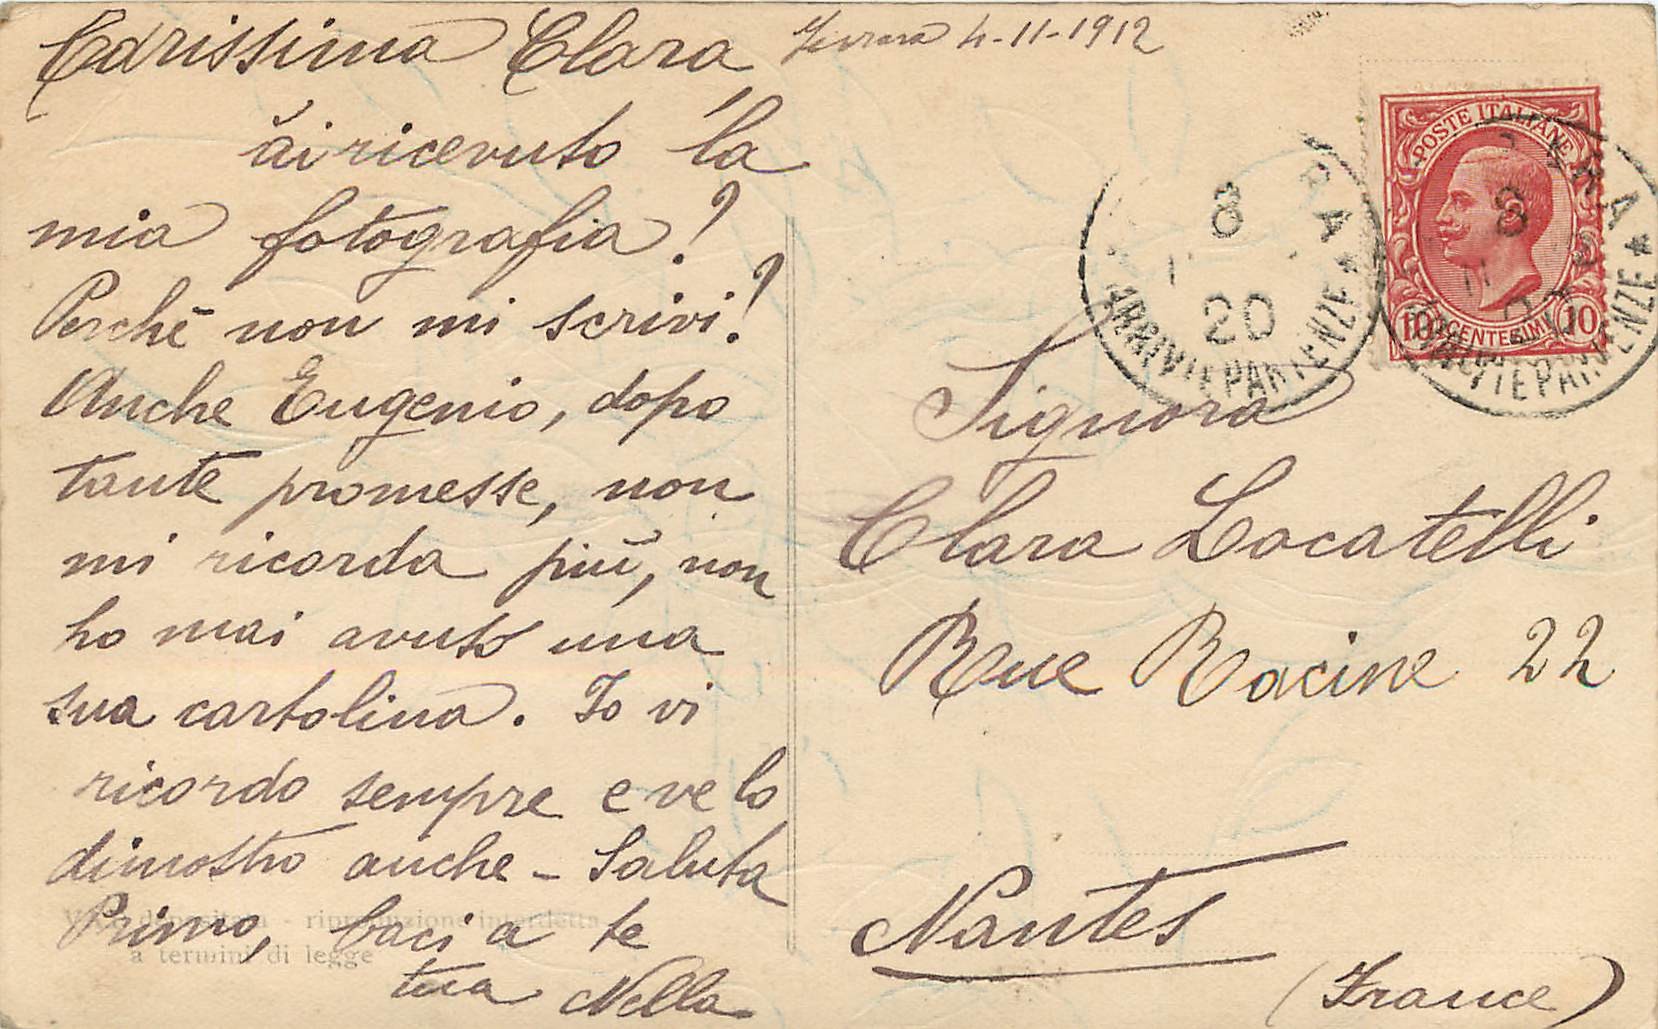 Carissima Clara, Ferrara 4-11-1912
ài ricevuto la
mia fotografia?!
Perchè non mi scrivi?!
Anche Eugenio, dopo
tante promesse, non
mi ricorda più, non
ho mai avuto una
sua cartolina. Io vi
ricordo sempre e ve lo
dimostro anche - Saluta
Primo, baci a te
tua Nella
depositata - riproduzione interdetta
a termini di legge
POSTE ITALIANE
10 CENTESIMI 10
RRA *
8
20
ARRIVI E PARTENZE
RRA *
8
11
20
ARRIVI E PARTENZE
Signora
Clara Locatelli
Rue Racine 22
Nantes
(France)